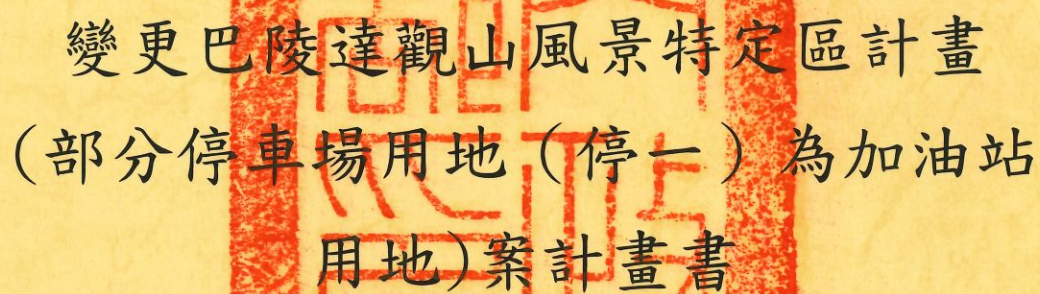 變更巴陵達觀山風景特定區計畫
(部分停車場用地（停一）為加油站
用地)案計畫書